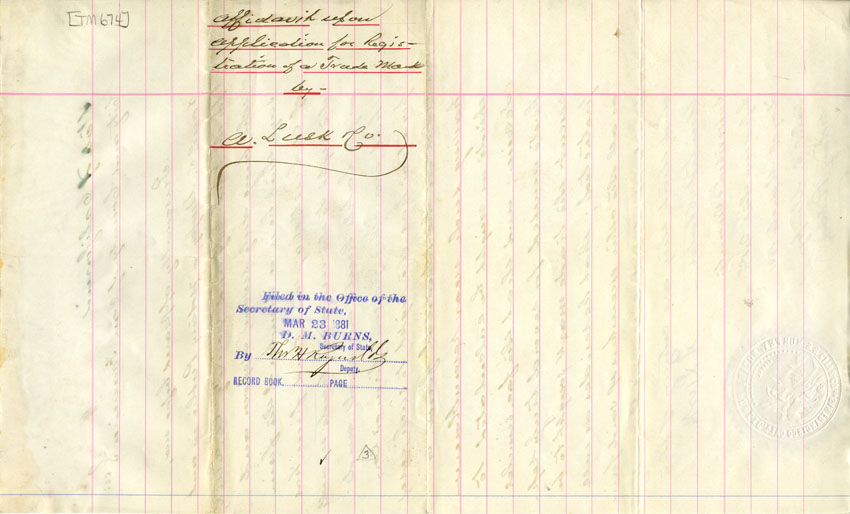 [TM674]
Affidavit upon
Application for Regis-
tration of a Trade Mark
by-
A. Lusk Co.
Filed in the Office of the
Secretary of State,
MAR 23 1881
D. M. BURNS,
Secretary of State
By Thos H Reynolds
Deputy.
RECORD BOOK PAGE
3